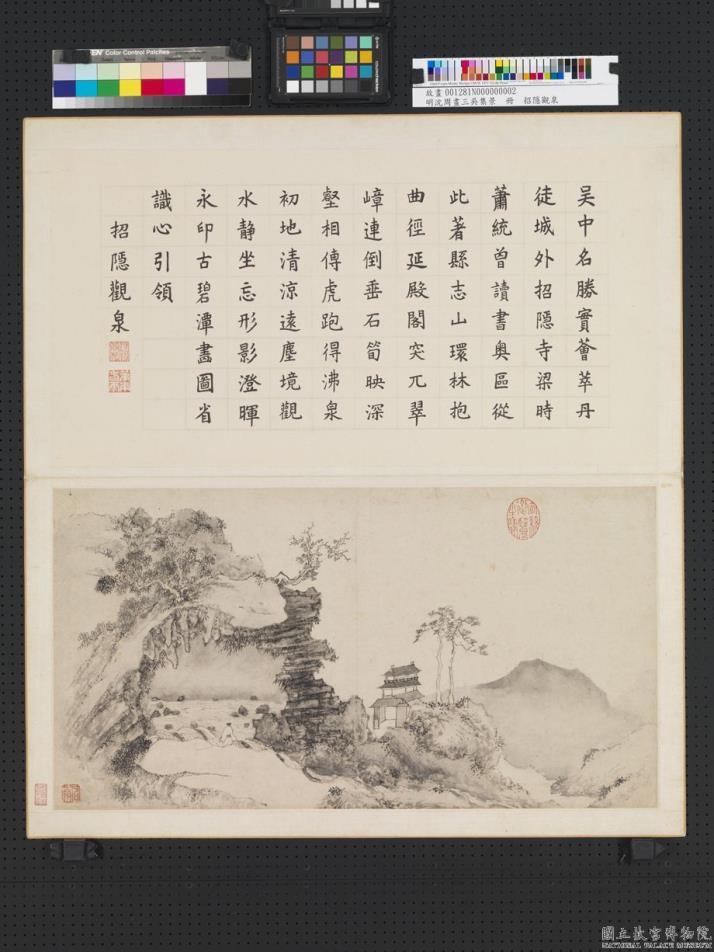 Color Control Patches
故畫 001281N000000002
明沈周畫三吳集景 冊 招隱觀泉
吴中名勝實薈萃丹
徒城外招隠寺梁時
蕭統曽讀書奥區從
此著縣志山環林抱
曲徑延殿閣突兀翠
嶂連倒垂石筍映深
壑相傳虎跑得沸泉
初地清涼遠塵境觀
水静坐忘形影澄暉
永印古碧潭畵圖省
識心引領
招隠觀泉
國立故宮博物院
NATIONAL PALACE MUSEUM